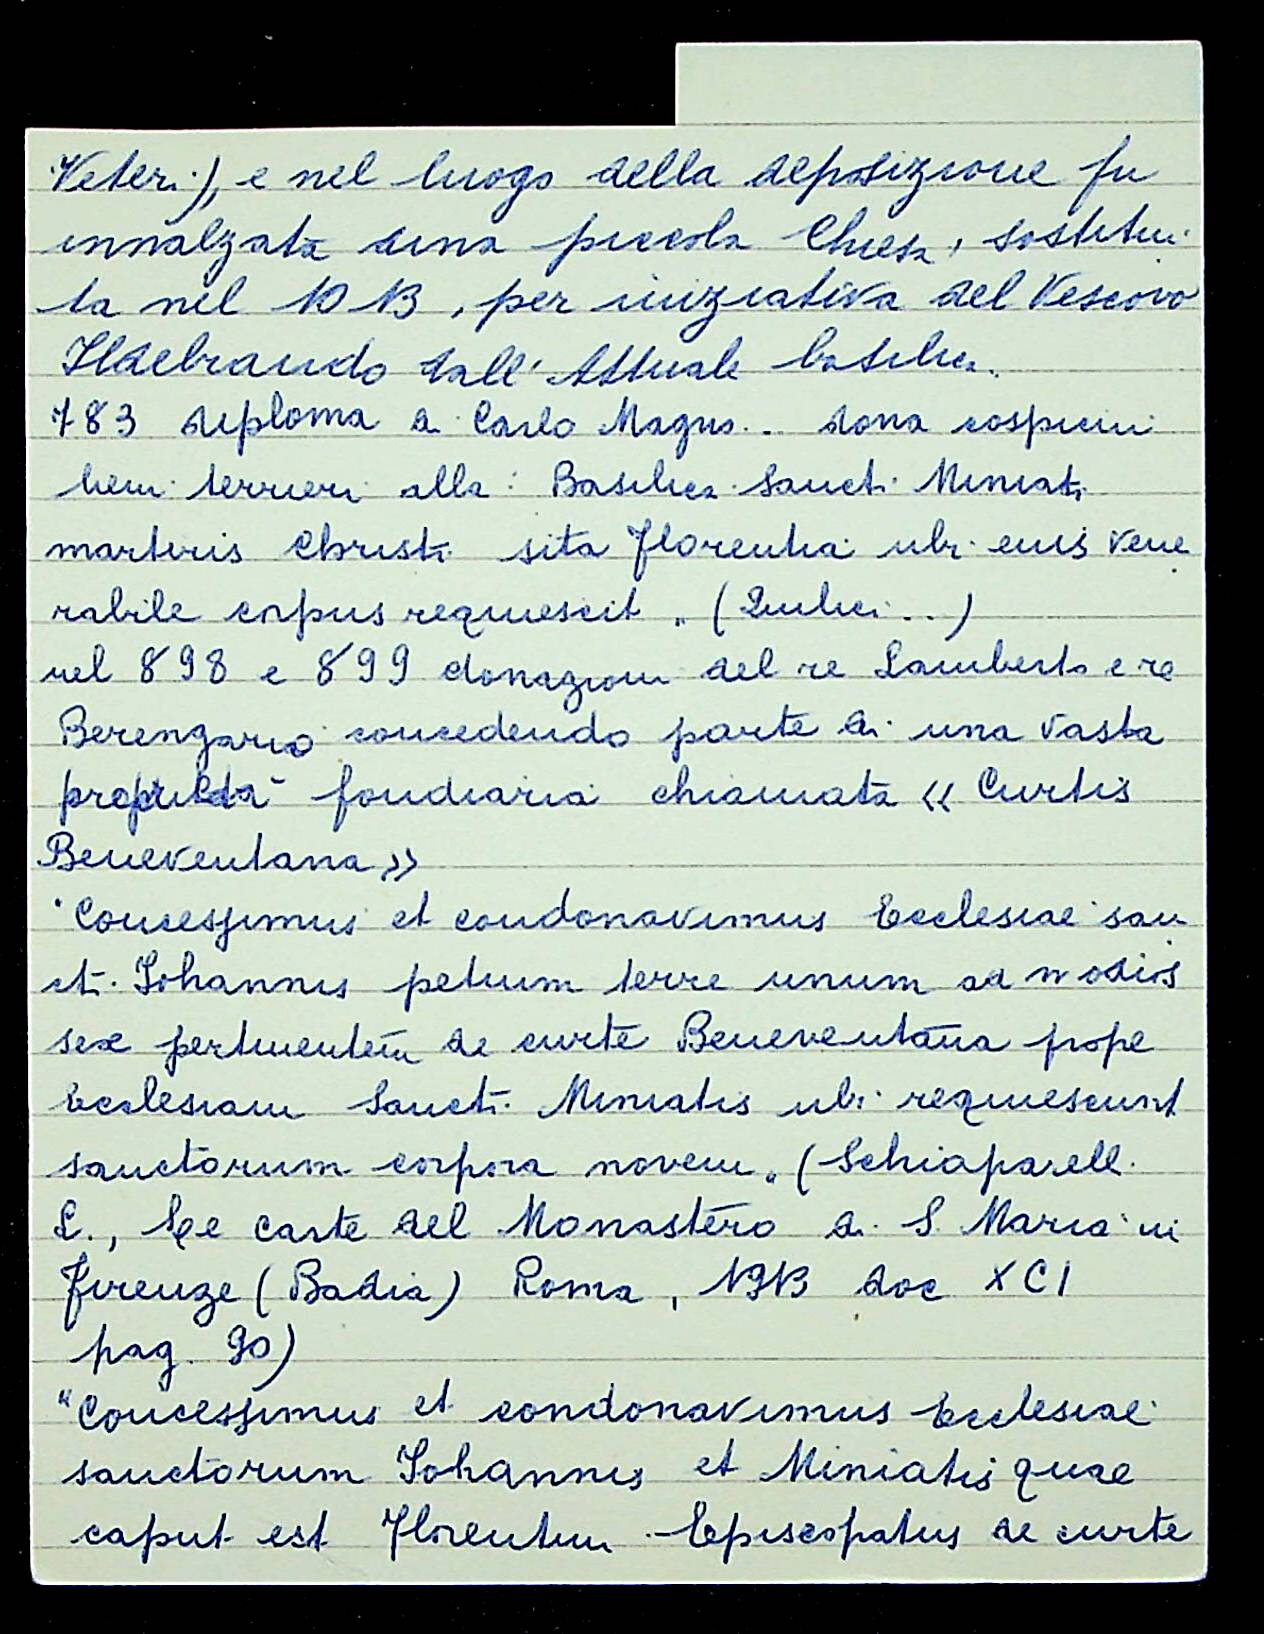 Veteri), e nel luogo della deposizione fu
innalzata una piccola Chiesa, sostitui-
ta nel 1013, per iniziativa del Vescovo
Ildebrando dall' Attuale basilica.
783 diploma di Carlo Magno... dona cospicui
beni terrieri alla: Basilica Sancti Miniati
martiris Christi sita Florentia ubi eius vene
rabile corpus requiescit„ (
nel 898 e 899 donazioni del re Lamberto e re
Berengario concedendo parte di una vasta
proprietà fondiaria chiamata « Curtis
Beneventana »
"Concessimus et condonavimus Ecclesiae san
cti Johannis petium terre unum ad modios
sex pertinentem de curte Beneventana prope
Ecclesiam Sancti Miniatis ubi requiescunt
sanctorum corpora novem„ (Schiaparelli
L., Le carte del Monastero di S. Maria in
Firenze (Badia) Roma, 1913 doc XCI
pag. 90)
"Concessimus et condonavimus Ecclesiae
sanctorum Johannis et Miniatis quae
caput est Florentini Episcopatus de curte